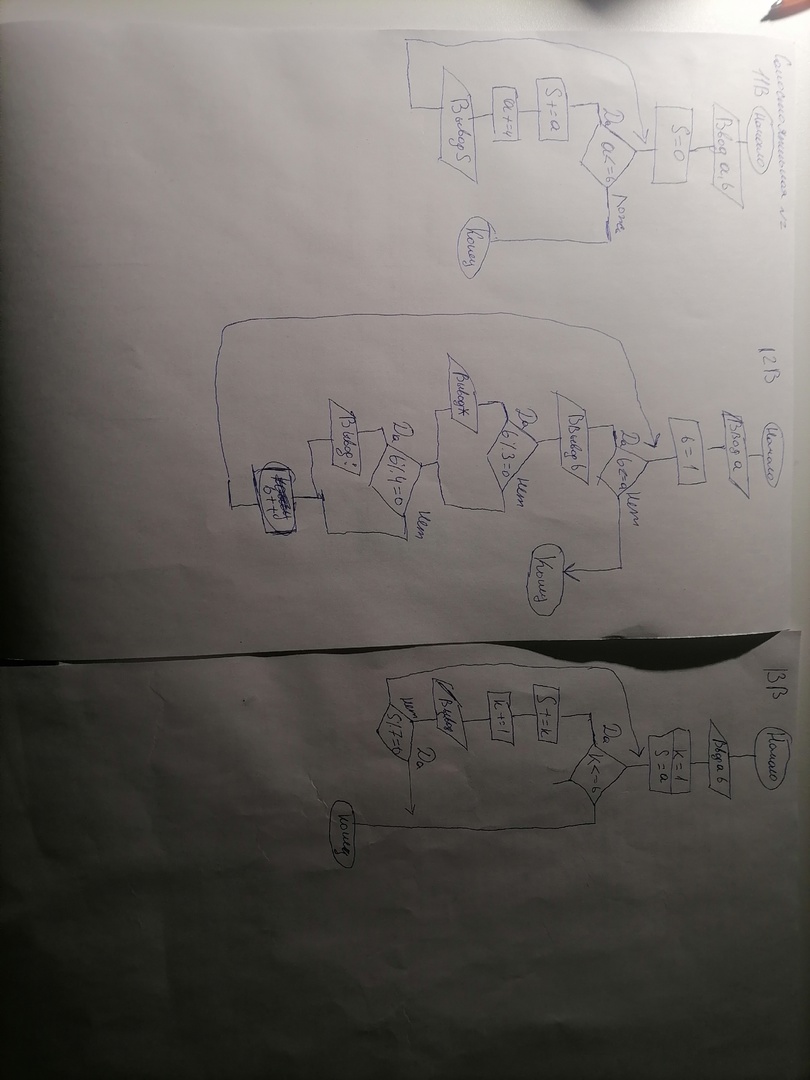 Самостоятельная №2
11В
Начало
Ввод a, b
S=0
a<=b
Да
S+=a
a+=4
Вывод S
Конец
12В
Начало
Ввод a
b=1
Да
Нет
Вывод b
b%3=0
Да
Нет
Вывод*
b%4=0
Да
Нет
Вывод:
b++
Конец
13В
Начало
Ввод a b
k=1
S=a
k<=b
Да
S+=k
k+=1
S%7=0
Нет
Да
Конец